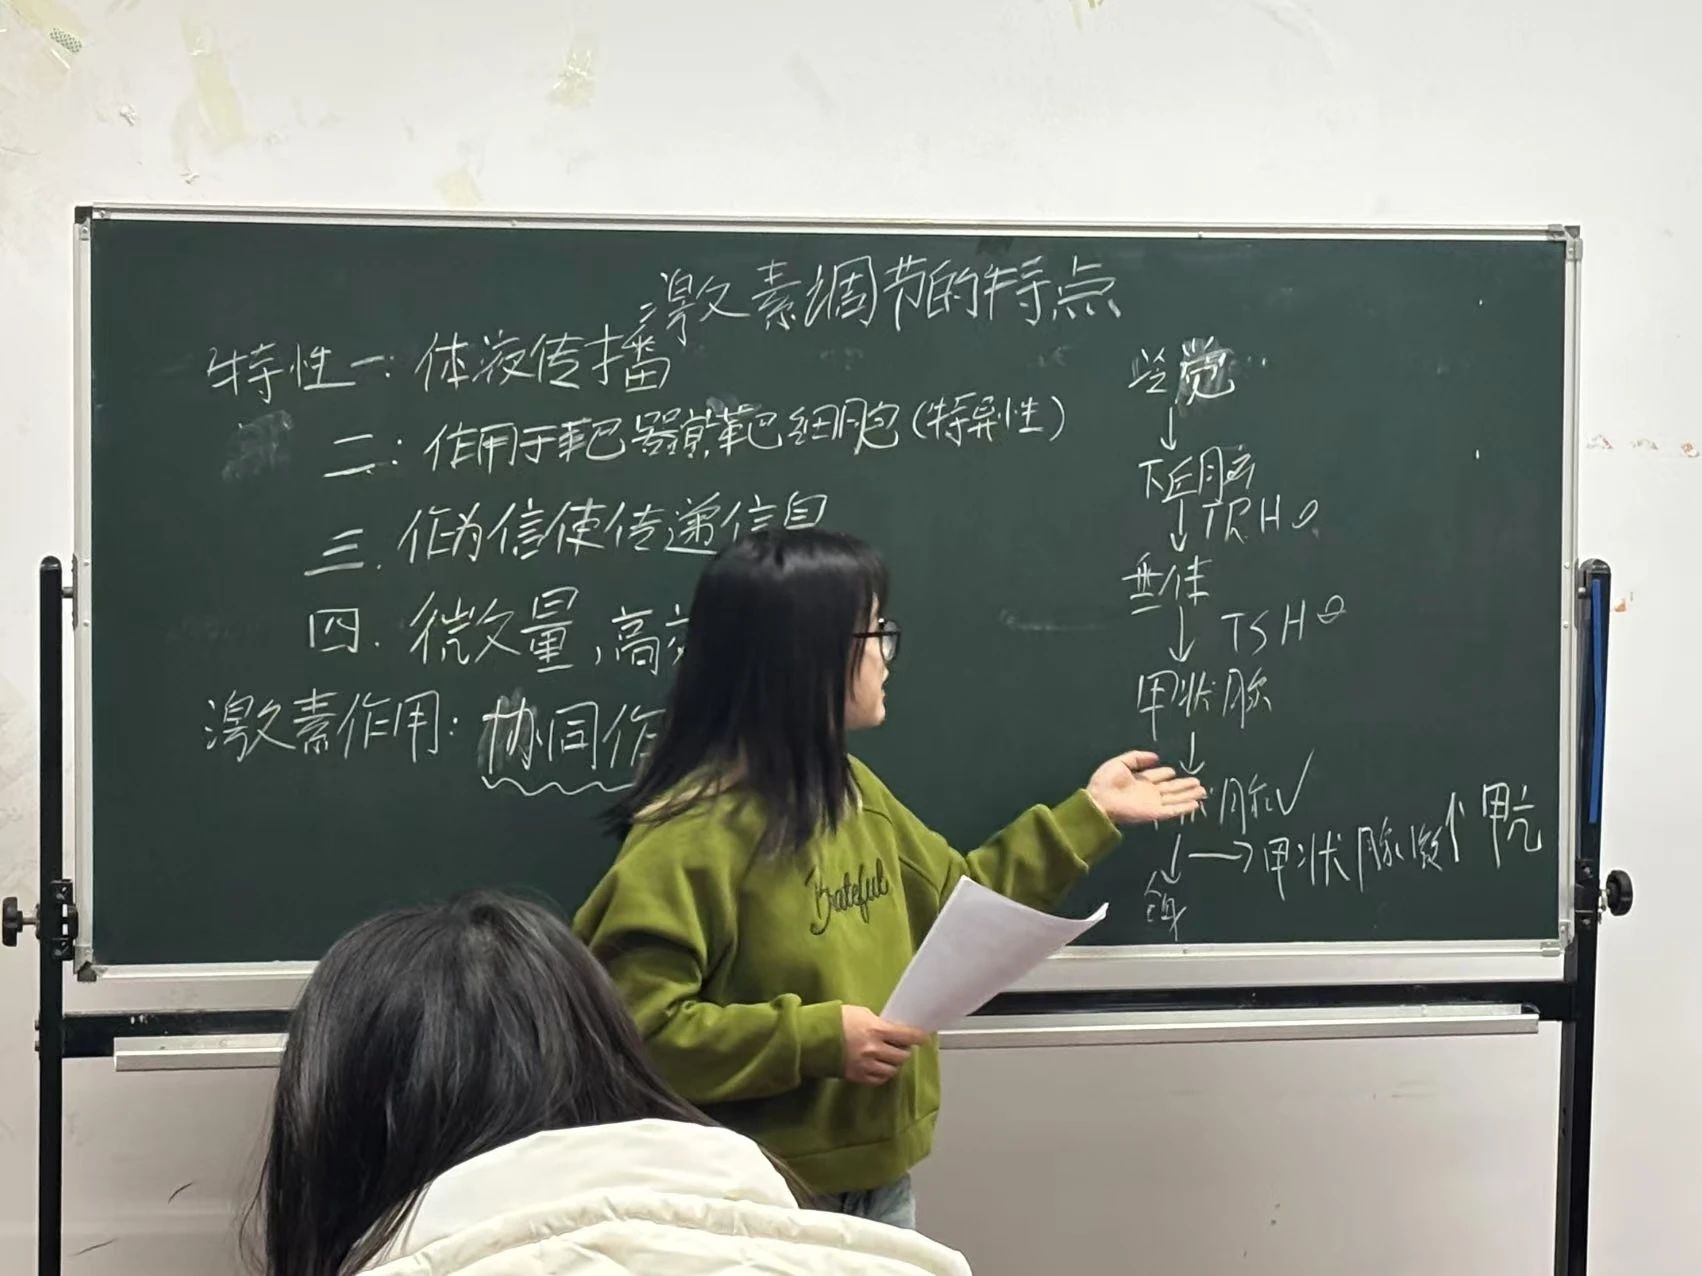 激素调节的特点
特性一：体液传播
二：作用于靶器官、靶细胞(特异性)
三.作为信使传递信息
四.微量,高效
激素作用：协同作
觉
下丘脑
TRH
垂体
TSH
甲状腺
腺
甲状腺激 ↑ 甲亢
Grateful